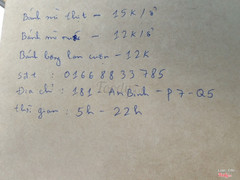 Bánh mì thịt - 15K/ổ
Bánh mì - 12K/ổ
Bánh bông lan cuộn - 12K
sđt : 01668833785
Địa chỉ : 181 - An Bình - P7 - Q5
Thời gian : 5h - 22h